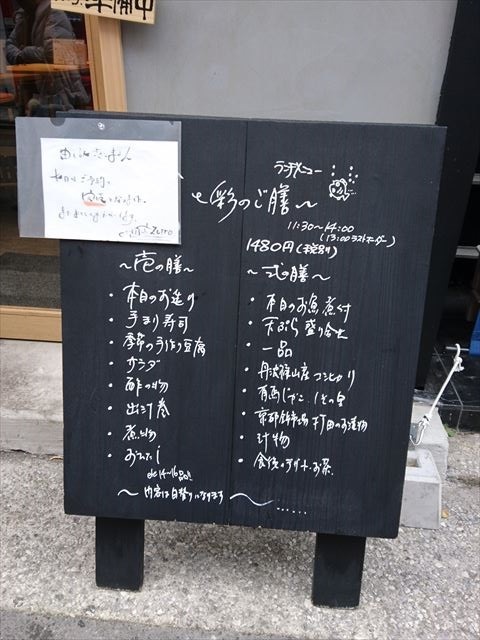 準備中
申し訳ございません
本日はご予約で
満席になります。
Zurro
ランチメニュー
〜彩のご膳〜
11:30〜14:00
(13:00ラストオーダー)
1480円(税別)
〜壱の膳〜
・本日のお造り
・手まり寿司
・季節の手作り豆腐
・サラダ
・酢の物
・出汁巻
・煮物
・おひたし
全14〜16品!!
〜弐の膳〜
・本日のお魚煮付
・天ぷら盛り合せ
・一品
・丹波篠山産コシヒカリ
・有馬じゃこ、
・京都錦市場 打田のお漬物
・汁物
・食後のデザート、お茶
〜内容は日替りになります〜……